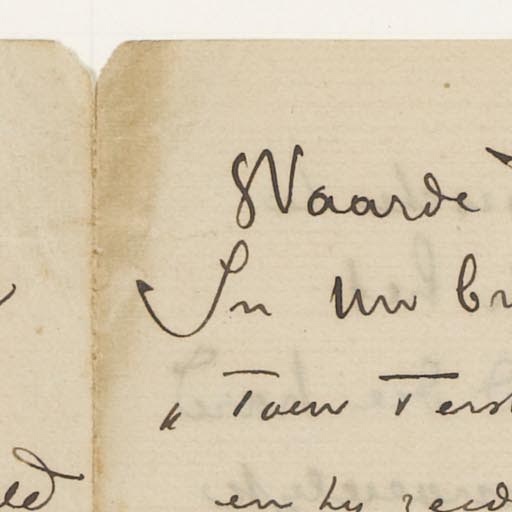 Waarde
In uw br
„ Toen Ters
en hy zeid